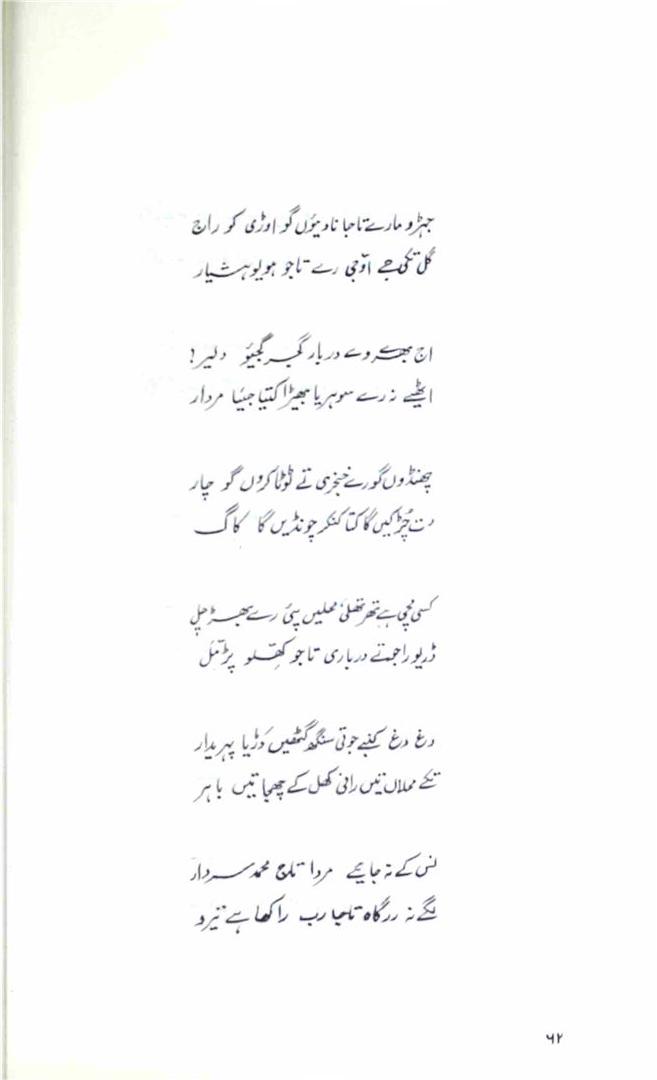 جہڑو مارے تاجا نا دیوُں گو اوڑی کو راج
گل تکی جے اوجی رے تاجو ہویو ہشیار
اج بھکروے دربار گجر گجیؤ دلیر!
اٹھیے نہ رے سوہریا بھیڑا کتیا جیئا مردار
چھنڈوں گو رے خنجری تے ٹوٹا کروں گو چار
رت چڑکیں گا کتا کنکر چونڈیں گا کاگ
کسی مچی ہے تھرتھلی محلیں پئی رے بھڑ چل
ڈریو راجہ تے درباری تاجو کھلو پڑ مل
دغ دغ کنبے جوتی سنگھ گٹھیں دڑیا پہریدار
تکے محلاں تیں رانی کھل کے چھجا تیں باہر
نس کے نہ جائیے مردا تاج محمد سردار
لگے نہ رے گاہ تاجا رب راکھا ہے تیرو
۶۲